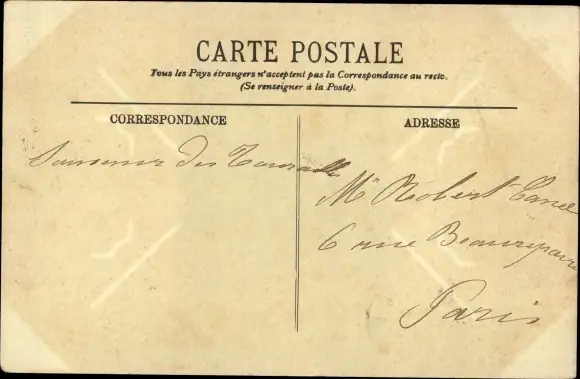 CARTE POSTALE
Tous les Pays étrangers n'acceptent pas la Correspondance au recto.
(Se renseigner à la Poste).
CORRESPONDANCE
ADRESSE
Souvenir des
Mr Robert
6 rue Beaurepaire
Paris